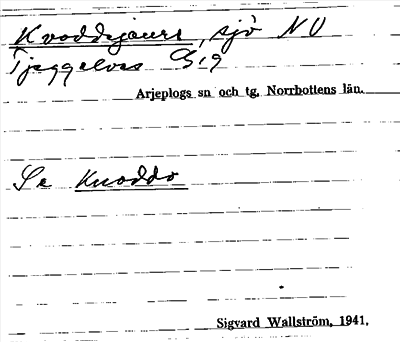 Kvoddejaure, sjö NV
Tjeggelvas G:9
Arjeplogs sn och tg, Norrbottens län.
Se Kuoddo
Sigvard Wallström, 1941.